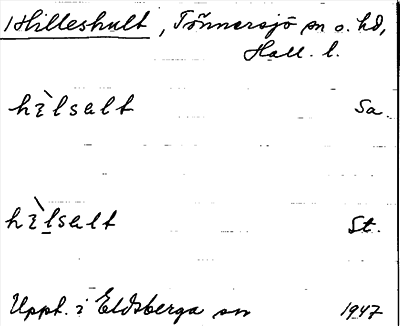 Hilleshult, Tönnersjö sn o. hd,
Hall. l.
hìlsalt Sa.
hìlsalt St.
Uppt. i Eldsberga sn 1947